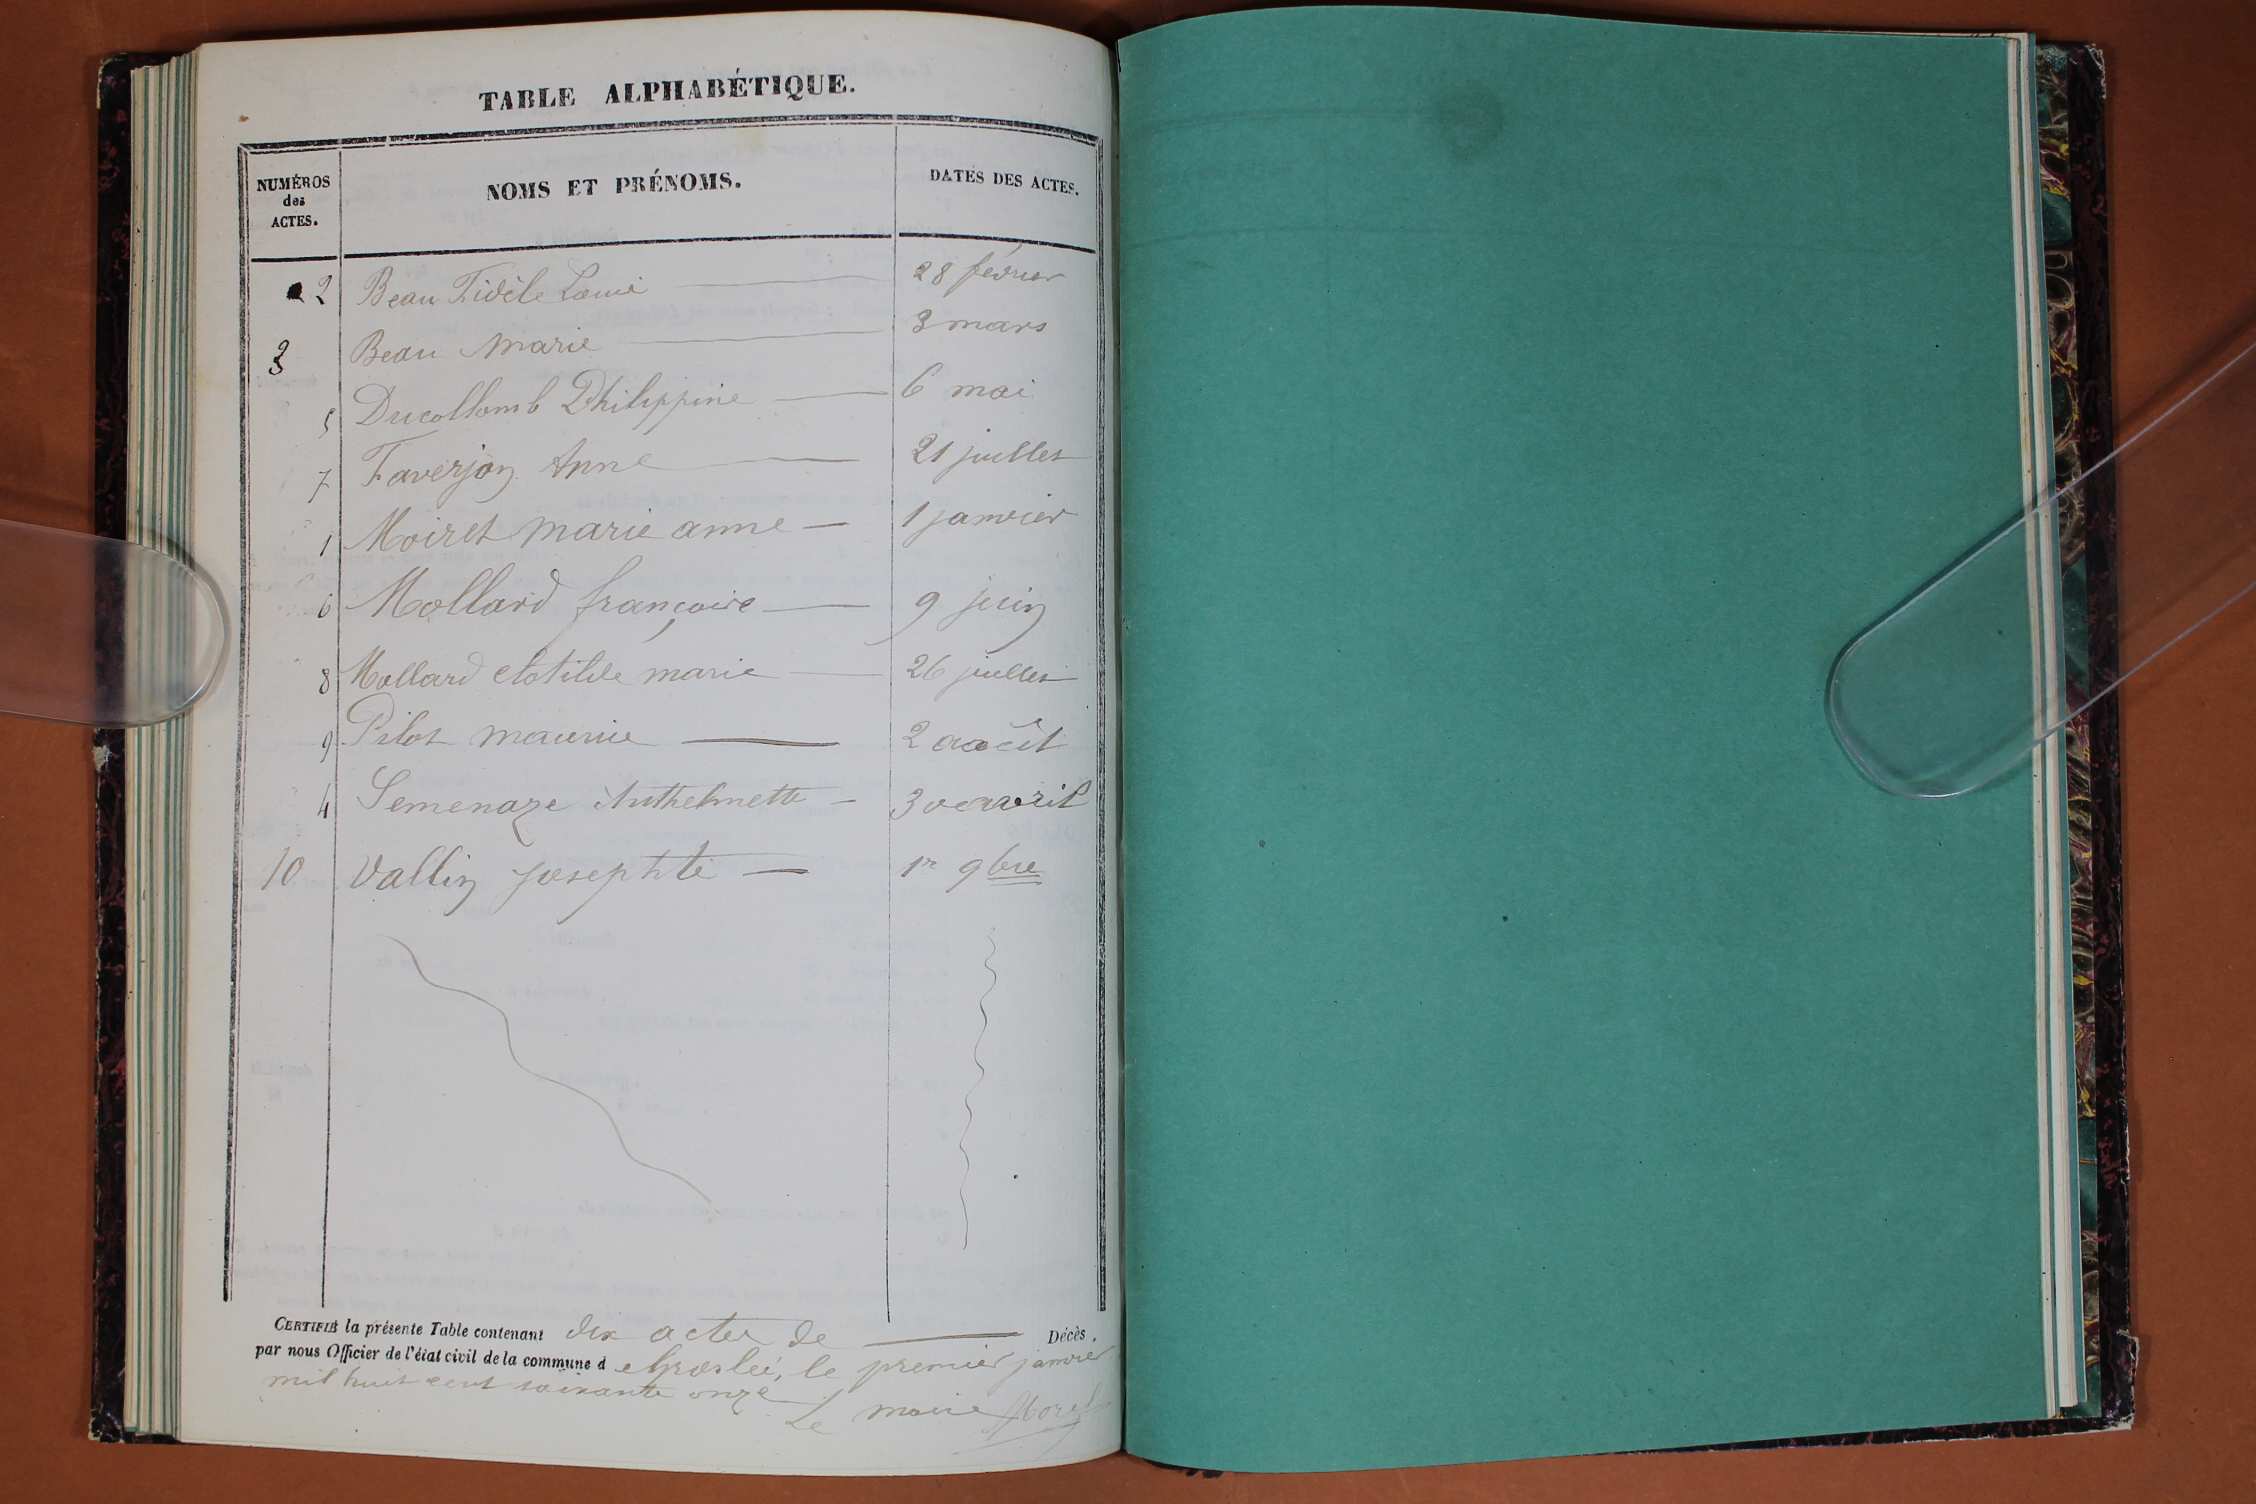 TABLE ALPHABÉTIQUE.
NUMÉROS
des
ACTES.
NOMS ET PRÉNOMS.
DATES DES ACTES.
2 Beau Fidèle Louis 28 février
3 Beau Marie 3 mars
5 Ducollomb Philippine 6 mai
7 Faverjon Anne 21 juillet
1 Moiret Marie anne 1 janvier
6 Mollard françoise 9 juin
8 Mollard clotilde marie 26 juillet
9 Pilot maurice 2 août
4 Semenaze Anthelmette 30 avril
10 Vallin Josephte 1er 9bre
CERTIFIÉ la présente Table contenant dix actes de Décès.
par nous Officier de l'état civil de la commune d e Groslée, le premier janvier
mil huit cent soixante onze
Le maire Morel